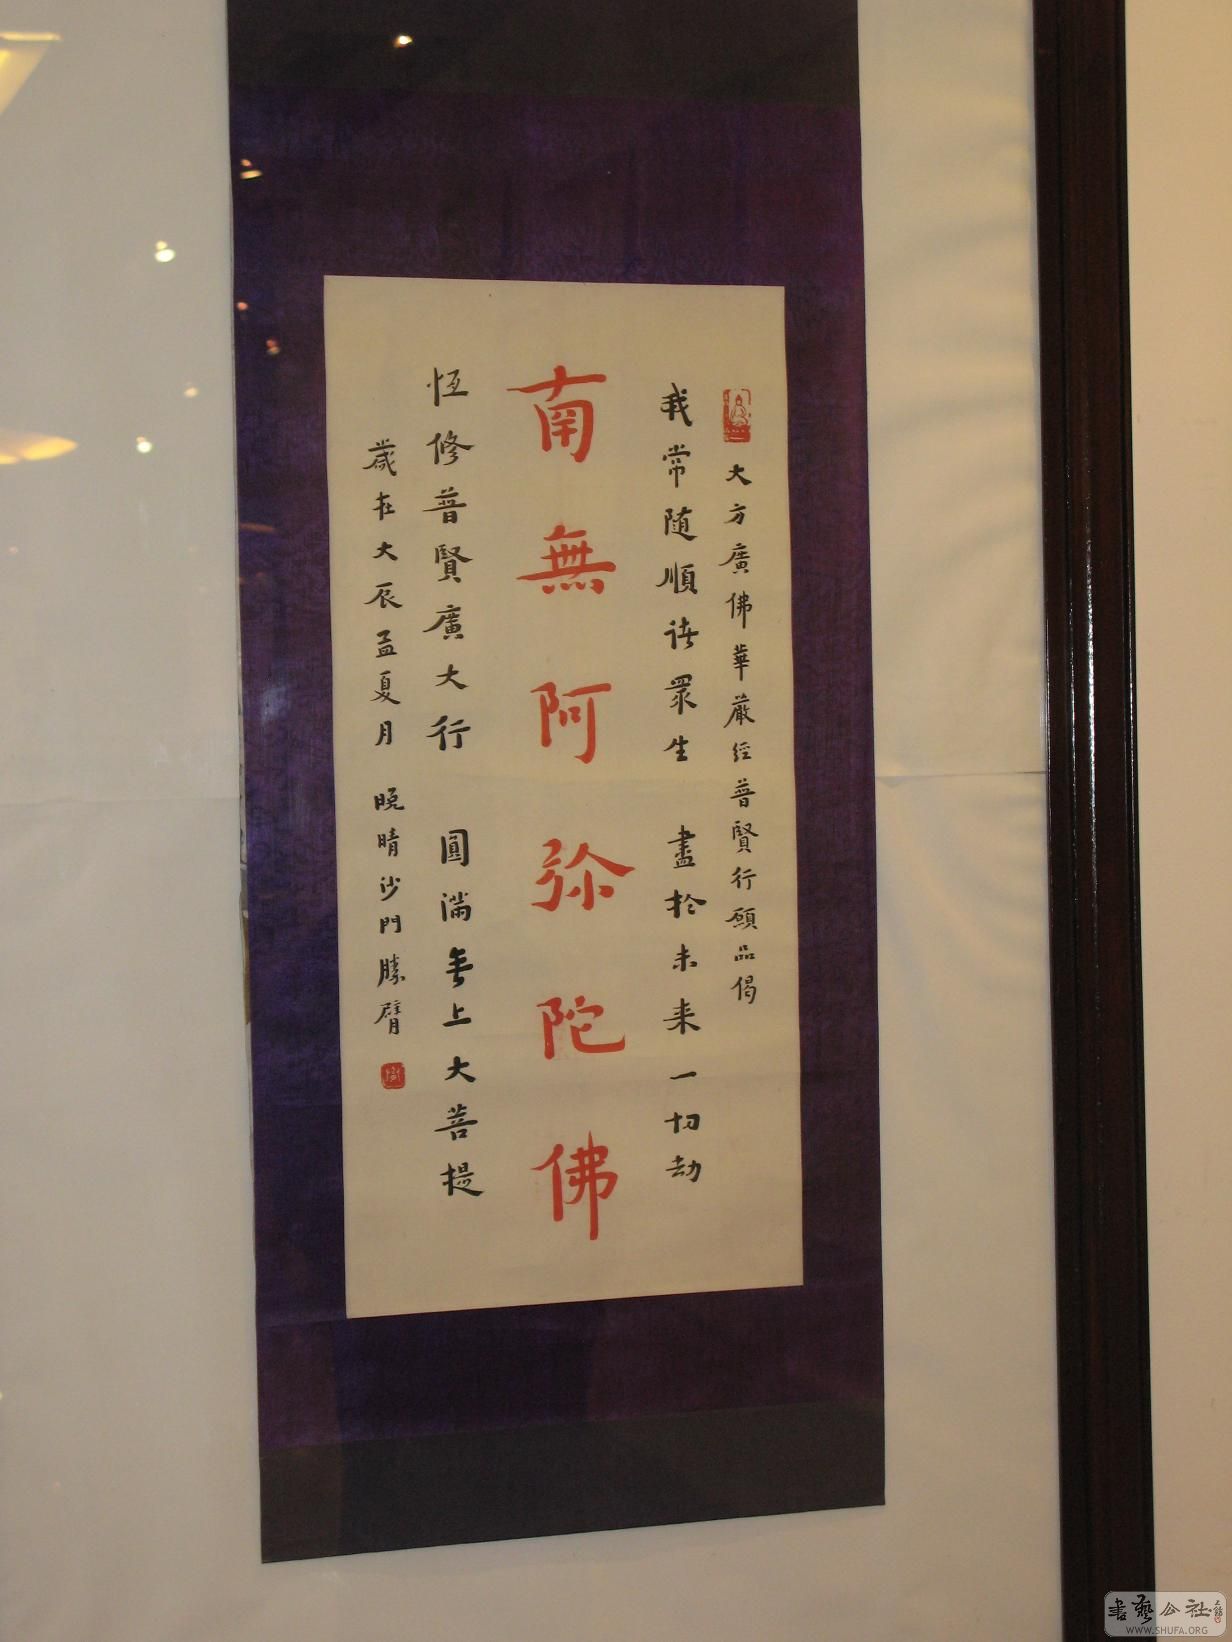 大方廣佛華嚴經普賢行願品偈
我常随順諸眾生 盡於未来一切劫
南無阿弥陀佛
恆修普賢廣大行 圓滿無上大菩提
歲在大辰孟夏月 晚晴沙門勝臂
書藝公社
WWW.SHUFA.ORG